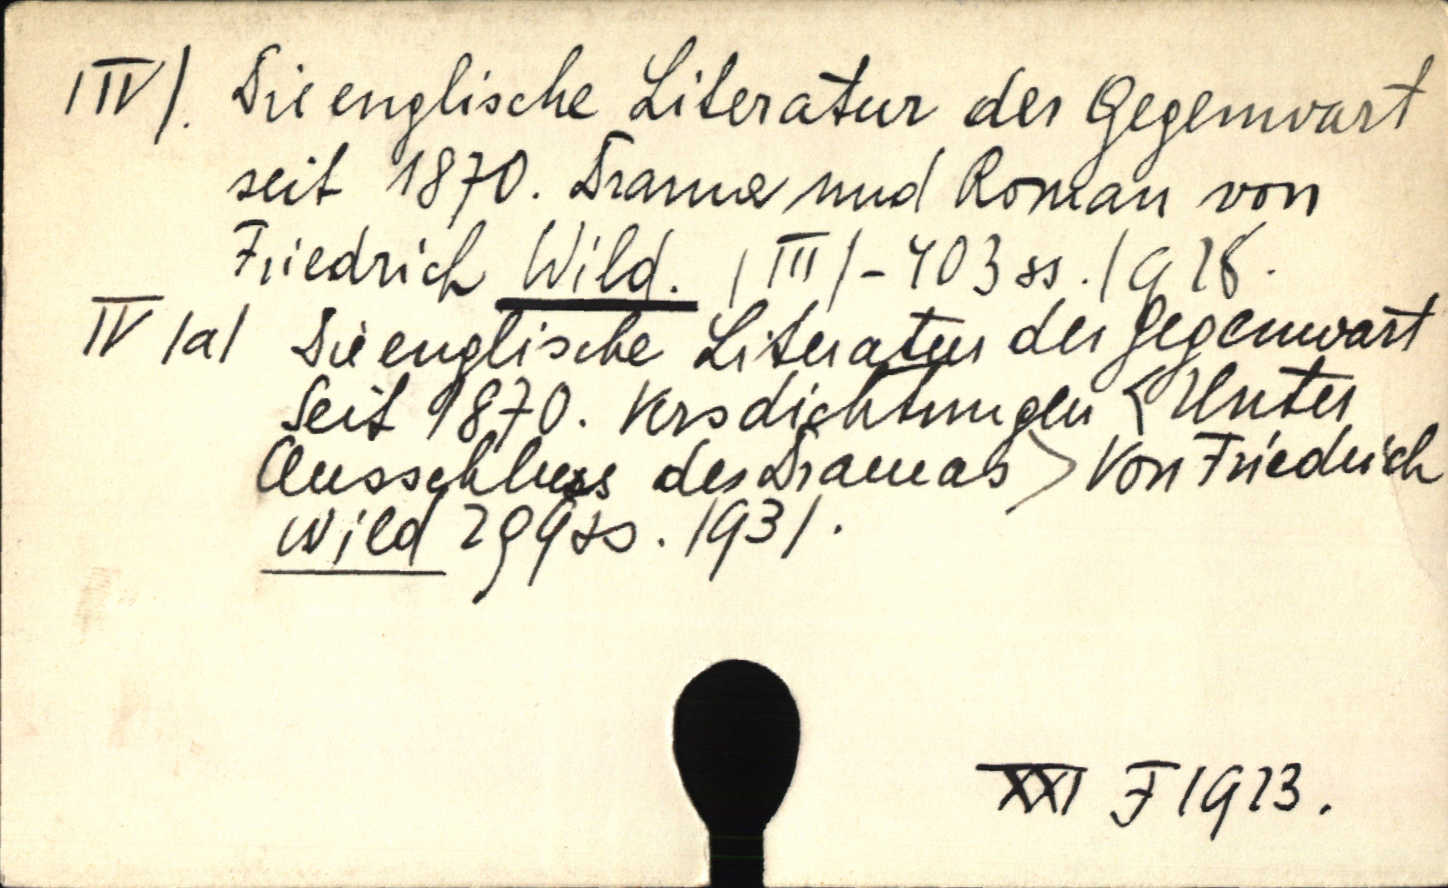 /IV/. Die englische Literatur der Gegenwart
seit 1870. Drama und Roman von
Friedrich Wild. /III/ - 403 ss. 1928.
IV /a/ Die englische Literatur der Gegenwart
Seit 1870. Versdichtungen < Unter
Ausschluss des Dramas > Von Friedrich
Wild 299 ss. 1931.
XXI F 1923.